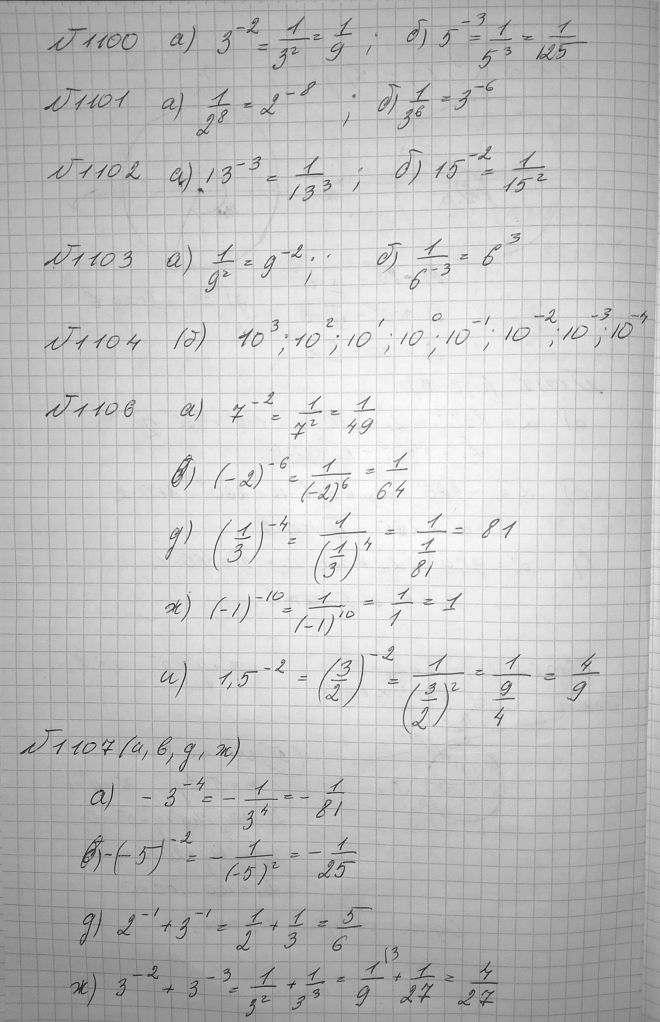 №1100 а) 3⁻² = 1/3² = 1/9 ; б) 5⁻³ = 1/5³ = 1/125
№1101 а) 1/2⁸ = 2⁻⁸ ; б) 1/3⁶ = 3⁻⁶
№1102 а) 13⁻³ = 1/13³ ; б) 15⁻² = 1/15²
№1103 а) 1/9² = 9⁻² ; б) 1/6⁻³ = 6³
№1104 (б) 10³ ; 10² ; 10¹ ; 10⁰ ; 10⁻¹ ; 10⁻² ; 10⁻³ ; 10⁻⁴
№1106 а) 7⁻² = 1/7² = 1/49
в) (-2)⁻⁶ = 1/(-2)⁶ = 1/64
д) (1/3)⁻⁴ = 1/(1/3)⁴ = 1/(1/81) = 81
ж) (-1)⁻¹⁰ = 1/(-1)¹⁰ = 1/1 = 1
и) 1,5⁻² = (3/2)⁻² = 1/(3/2)² = 1/(9/4) = 4/9
№1107 (а, в, д, ж)
а) -3⁻⁴ = -1/3⁴ = -1/81
в) -(-5)⁻² = -1/(-5)² = -1/25
д) 2⁻¹ + 3⁻¹ = 1/2 + 1/3 = 5/6
ж) 3⁻² + 3⁻³ = 1/3² + 1/3³ = 1/9 ⁽³ + 1/27 = 4/27